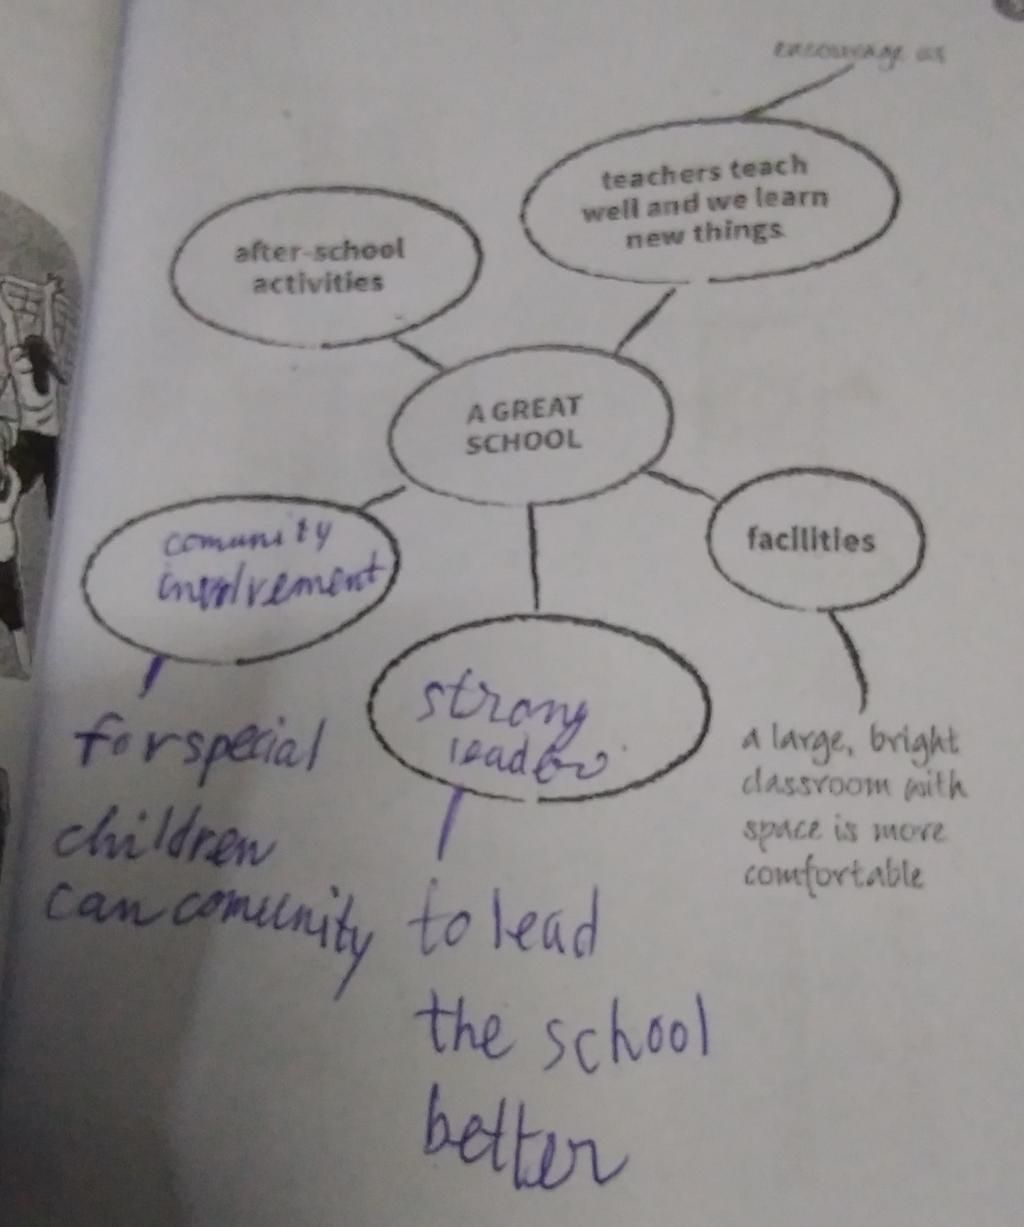 encourage us
teachers teach
well and we learn
new things
after-school
activities
A GREAT
SCHOOL
facilities
a large, bright
classroom with
space is more
comfortable
comunity
involvement
for special
children
can comunity
strong
leader
to lead
the school
better